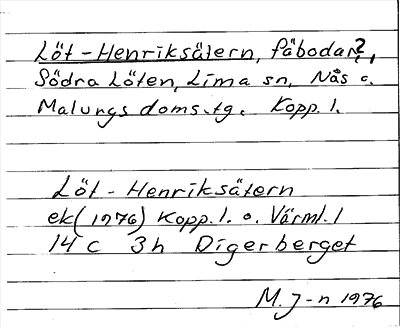 Löt-Henriksätern, fäbodar?,
Södra Löten, Lima sn, Nås o.
Malungs doms.tg. Kopp. l.
Löt-Henriksätern
ek (1976) Kopp. l. o. Värml. l
14 c 3h Digerberget
M. J-n 1976